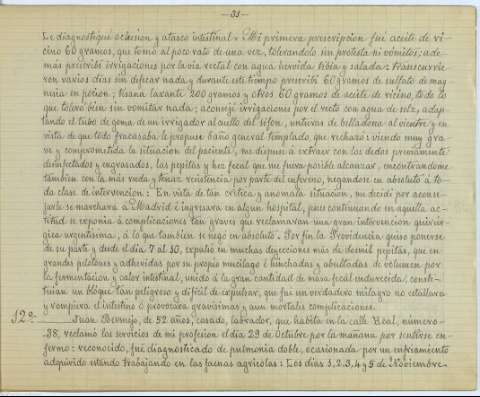 -33-
Le diagnostiqué oclusion y atasco intestinal. Mi primera prescripcion fué aceite de ri-
cino 60 gramos, que tomó al poco rato de una vez, tolerandolo sin protesta ni vómitos; ade-
más prescribí irrigaciones por la via rectal con agua hervida tibia y salada: transcurrie-
ron varios dias sin defecar nada y durante este tiempo prescribí 60 gramos de sulfato de mag
nesia en pocion; tisana laxante 200 gramos y otros 60 gramos de aceite de ricino, todo lo
que toleró bien sin vomitar nada; aconsejé irrigaciones por el recto con agua de selz, adap-
tando el tubo de goma de un irrigador al cuello del sifon, unturas de belladona al vientre y en
vista de que todo fracasaba, le propuse baño general templado, que rechazó: viendo muy gra-
ve y comprometida la situacion del paciente, me dispuse á extraer con los dedos previamente
desinfectados y engrasados, las pepitas y hez fecal que me fuera posible alcanzar, encontrandome
tambien con la más ruda y tenaz resistencia por parte del enfermo, negandose en absoluto á to-
da clase de intervencion: En vista de tan critica y anomala situacion, me decidí por aconse-
jarle se marchara á Madrid é ingresara en algun hospital, pues continuando en aquella ac-
titud se exponia á complicaciones tan graves que reclamaran una gran intervencion quirúr-
gica urgentisima, á lo que tambien se negó en absoluto. Por fin la Providencia quiso ponerse
de su parte y desde el dia 7 al 30, expulsó en muchas deyecciones más de dosmil pepitas, que en
grandes pelotones y adheridas por su propio mucilago é hinchadas y abultadas de volumen por
la fermentacion y calor intestinal, unido á la gran cantidad de masa fecal endurecida, consti-
tuian un bloque tan peligroso y dificil de expulsar, que fué un verdadero milagro no estallara
y rompiera el intestino ó provocara gravisimas y aun mortales complicaciones.
12º Juan Bermejo, de 52 años, casado, labrador, que habita en la calle Real, número
38, reclamó los servicios de mi profesion el dia 29 de Octubre por la mañana por sentirse en-
fermo: reconocido, fué diagnosticado de pulmonia doble, ocasionada por un enfriamiento
adquirido estando trabajando en las faenas agricolas: Los dias 1, 2, 3, 4 y 5 de Noviembre